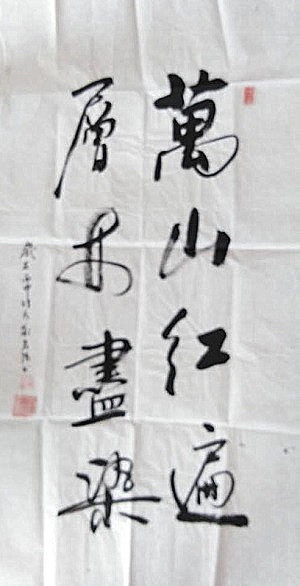 萬山紅遍
層林盡染